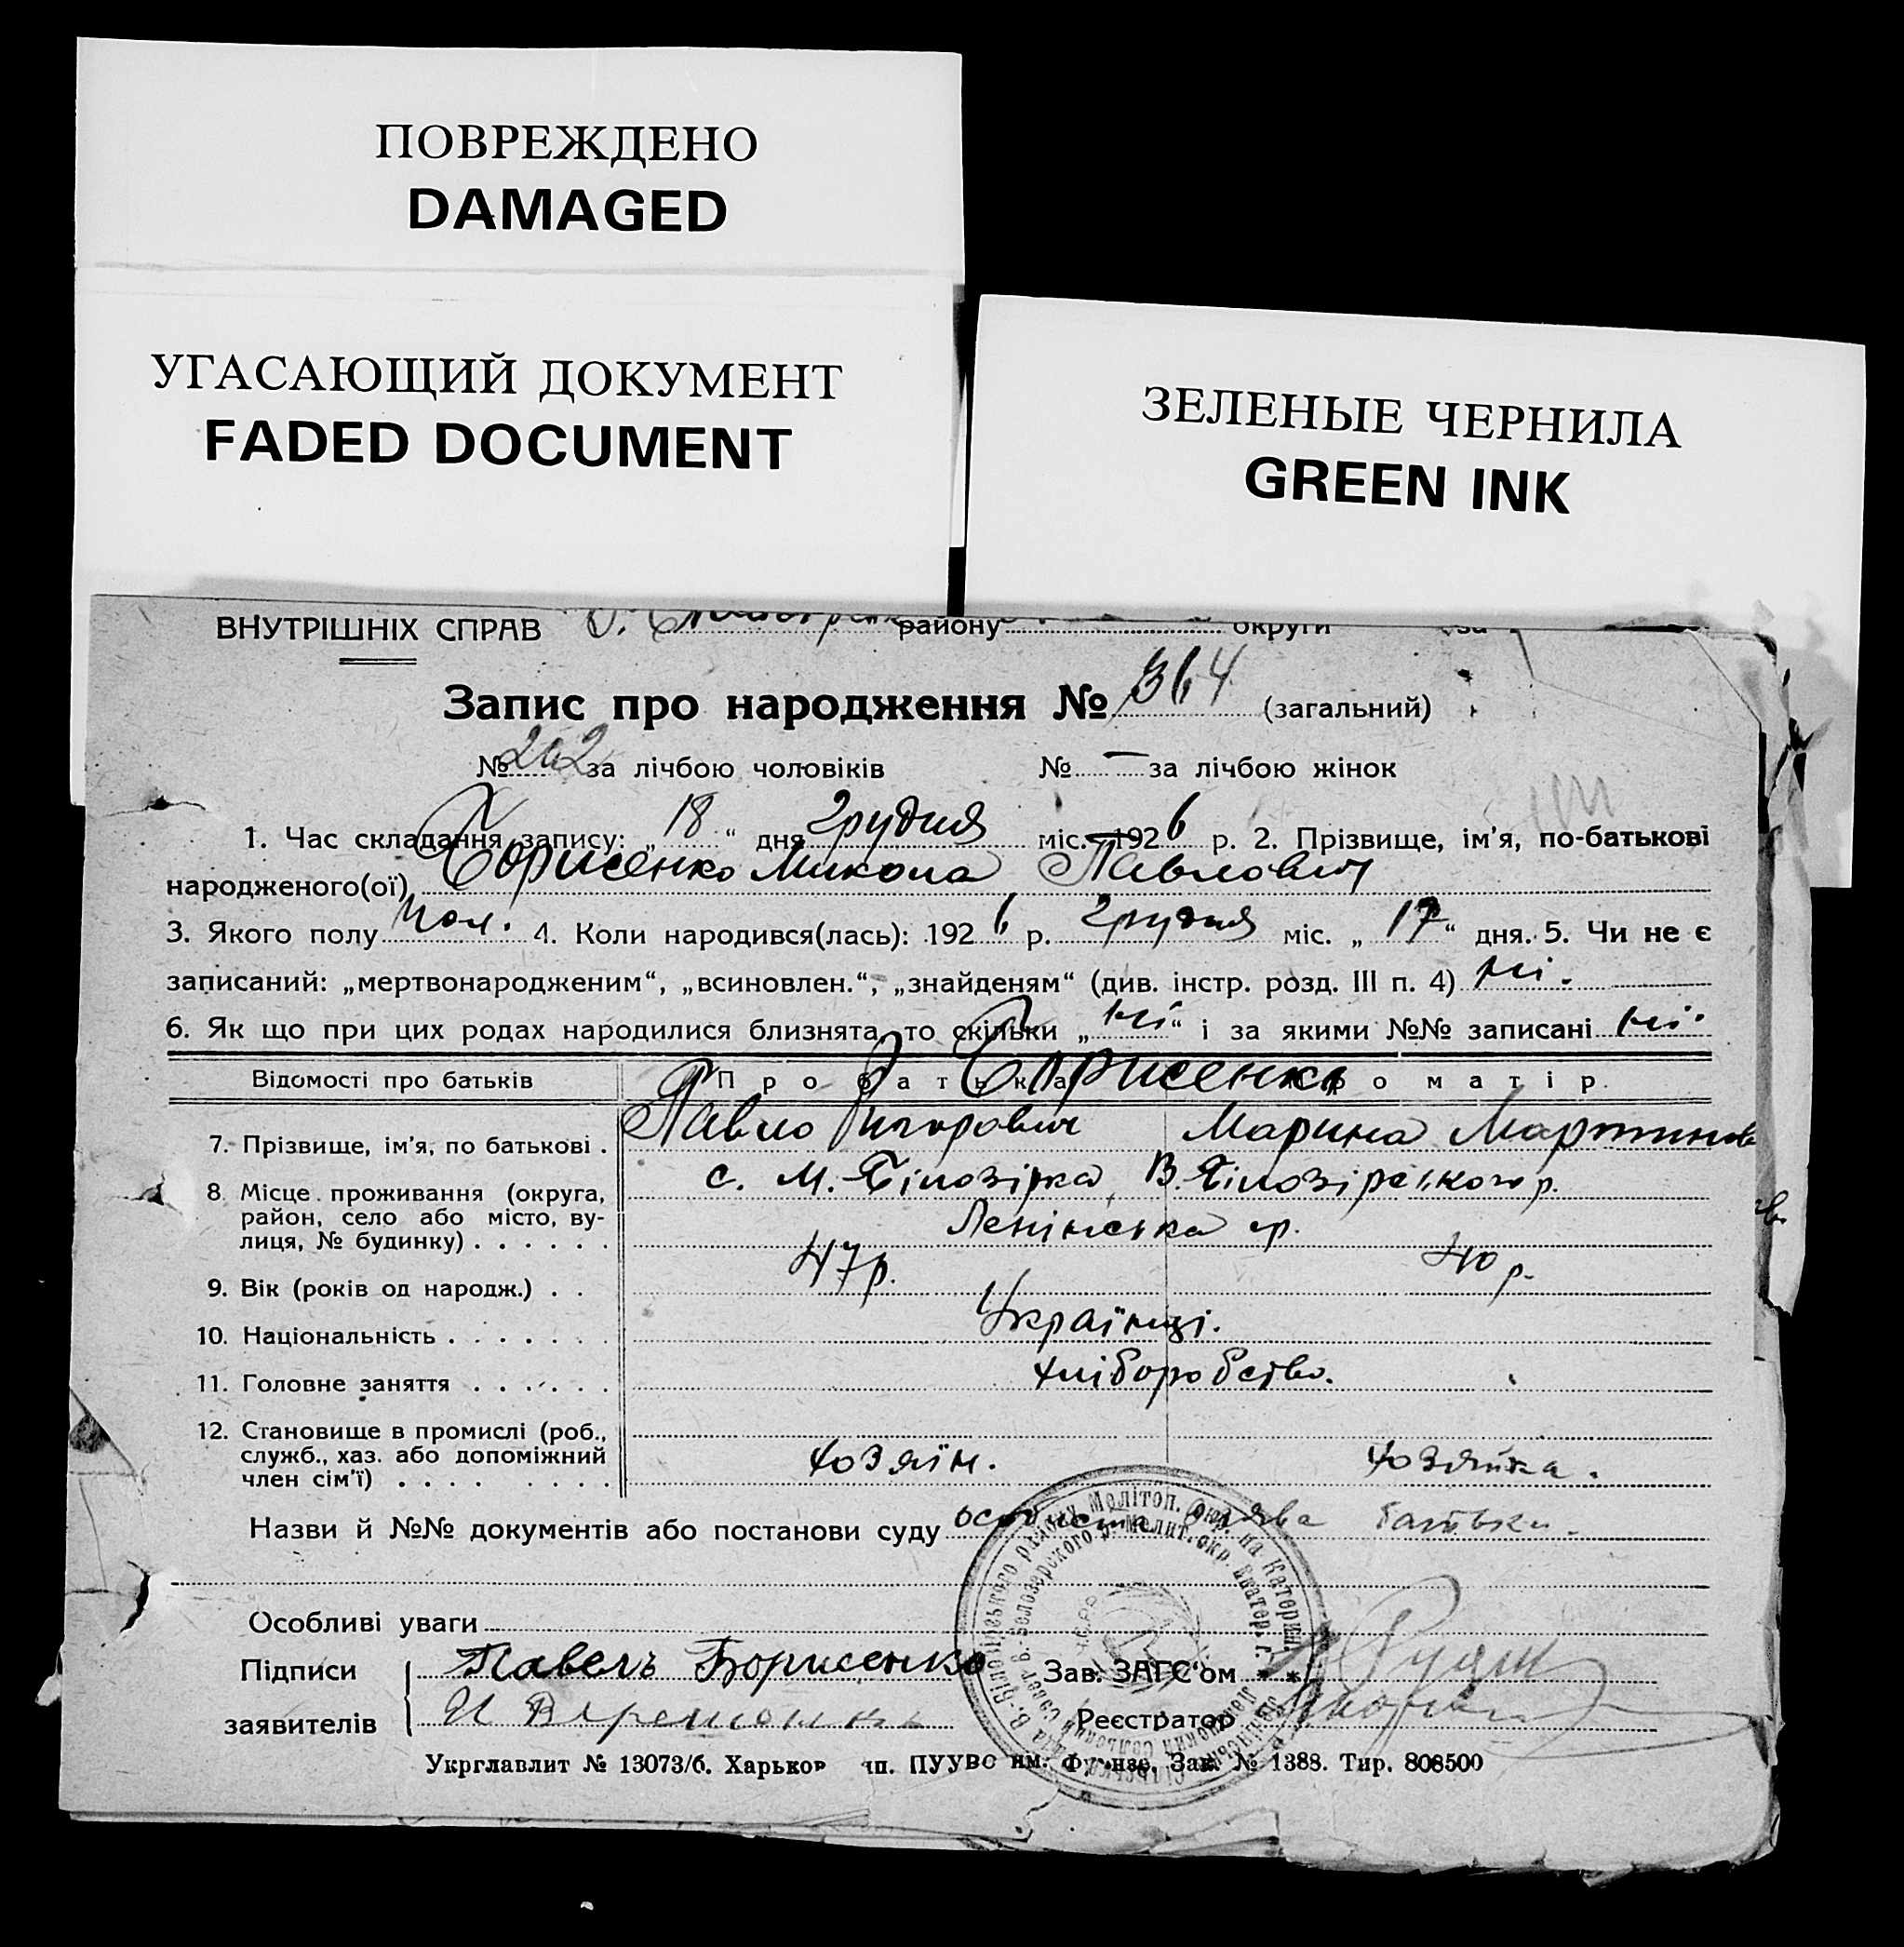 ПОВРЕЖДЕНО
DAMAGED
УГАСАЮЩИЙ ДОКУМЕНТ
FADED DOCUMENT
ЗЕЛЕНЫЕ ЧЕРНИЛА
GREEN INK
ВНУТРІШНІХ СПРАВ району округи за
Запис про народження № 364 (загальний)
№ 202 за лічбою чоловіків № — за лічбою жінок
1. Час складання запису: „18“ дня грудня міс. 1926 р. 2. Прізвище, ім'я, по-батькові
народженого(ої) Борисенко Микола Павлович
3. Якого полу чол. 4. Коли народився(лась): 1926 р. грудня міс. „17“ дня. 5. Чи не є
записаний: „мертвонародженим“, „всиновлен.“, „знайденям“ (див. інстр. розд. III п. 4) ні.
6. Як що при цих родах народилися близнята, то скільки „ні“ і за якими №№ записані ні.
Відомості про батьків Про батька Про матір.
Борисенки
7. Прізвище, ім'я, по батькові . Павло Григорович Марина Мартинов
8 Місце проживання (округа, с. М. Білозірка, В. Білозірського р.
район, село або місто, ву-
лиця, № будинку) . . . . . . Ленінська
9. Вік (років од народж.) . . 47 р. 40 р.
10. Національність . . . . . . . Українці.
11. Головне заняття . . . . . . хліборобство.
12. Становище в промислі (роб.,
служб., хаз. або допоміжний
член сім'ї) . . . . . . . . хозяїн. хозяйка.
Назви й №№ документів або постанови суду особиста заява батьки.
Особливі уваги
Підписи Павелъ Борисенко Зав. ЗАГС'ом
заявителів Реєстратор
Укрглавлит № 13073/б. Харьков ПУУВО им. Фрунзе, Зак. № 1388. Тир. 808500